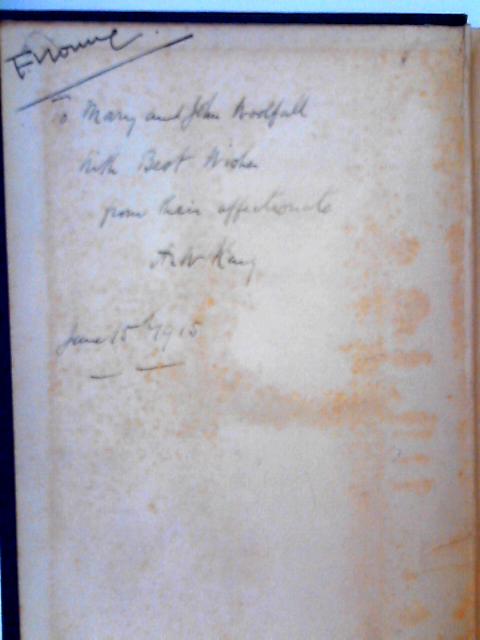 To Mary and John Woolfall
With Best Wishes
from their affectionate
June 15th 1915